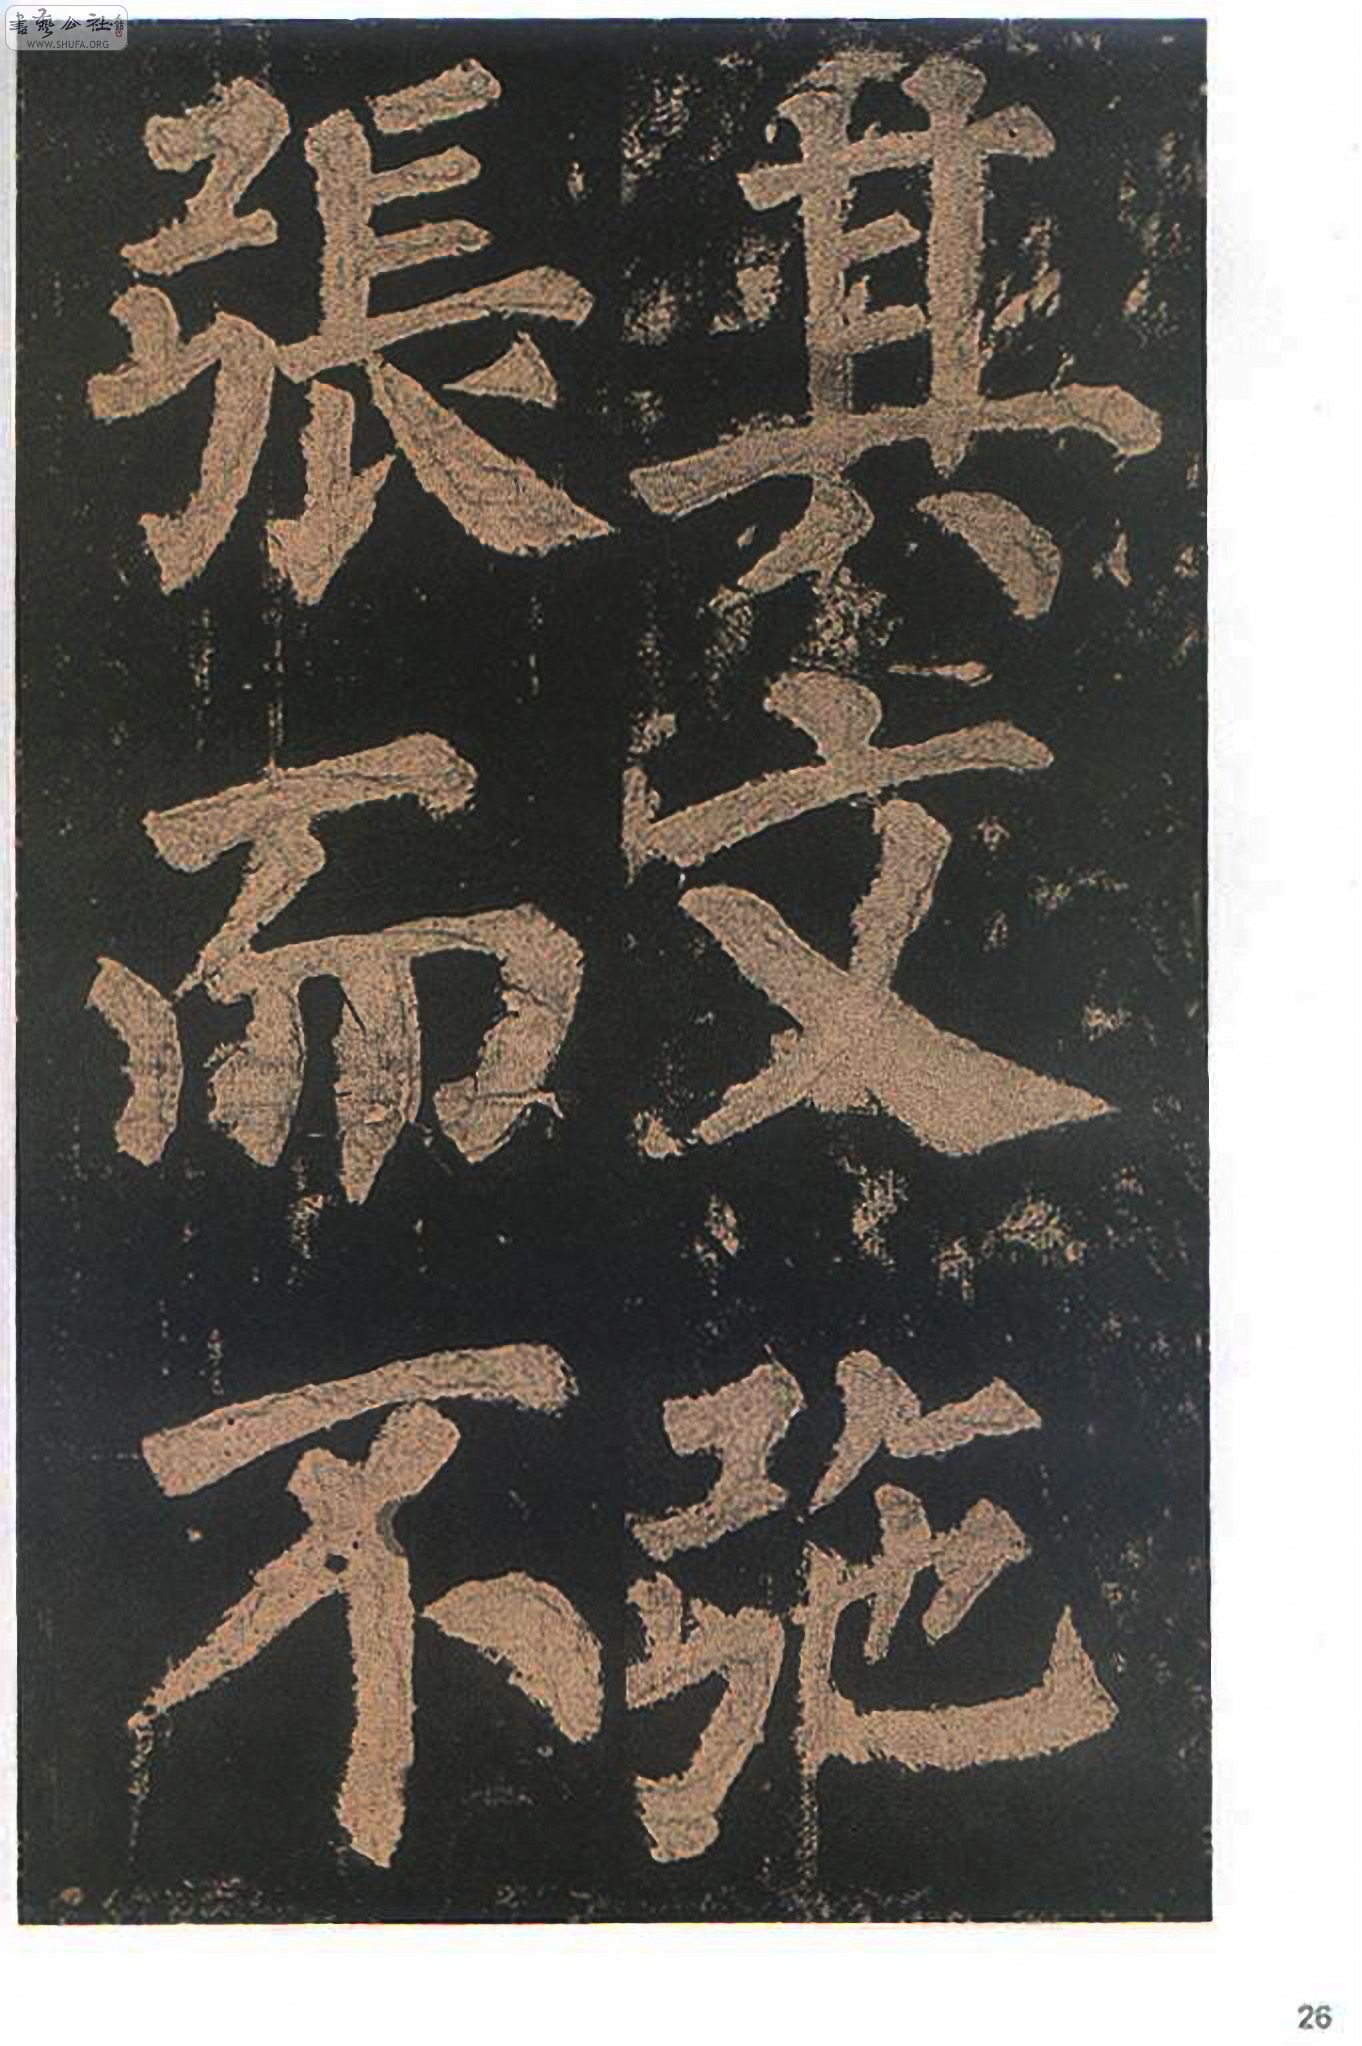 書藝公社
WWW.SHUFA.ORG
其文弛
張而不
26